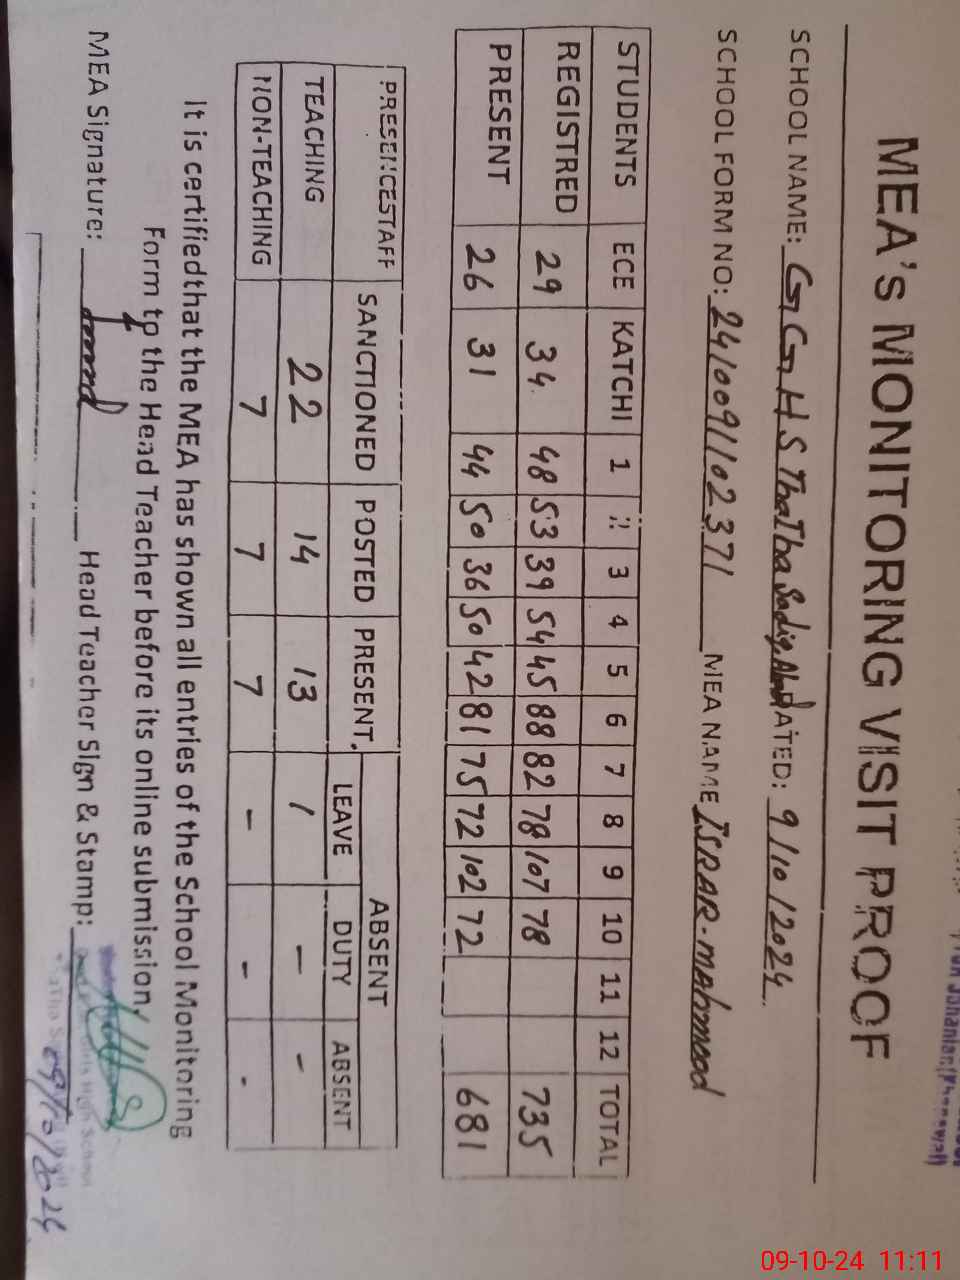 MEA'S MONITORING VISIT PROOF
SCHOOL NAME: GGHS Thatha Sadiq Abad DATED: 9/10/2024
SCHOOL FORM NO: 2410091102371 MEA NAME ISRAR-mahmood
STUDENTS ECE KATCHI 1 2 3 4 5 6 7 8 9 10 11 12 TOTAL
REGISTRED 29 34 48 53 39 54 45 88 82 78 107 78 735
PRESENT 26 31 44 50 36 50 42 81 75 72 102 72 681
PRESENCESTAFF SANCTIONED POSTED PRESENT ABSENT
LEAVE DUTY ABSENT
TEACHING 22 14 13 1 - -
NON-TEACHING 7 7 7 - - -
It is certified that the MEA has shown all entries of the School Monitoring
Form to the Head Teacher before its online submission.
MEA Signature: Head Teacher Sign & Stamp:
Girls High School
09/10/2024
09-10-24 11:11